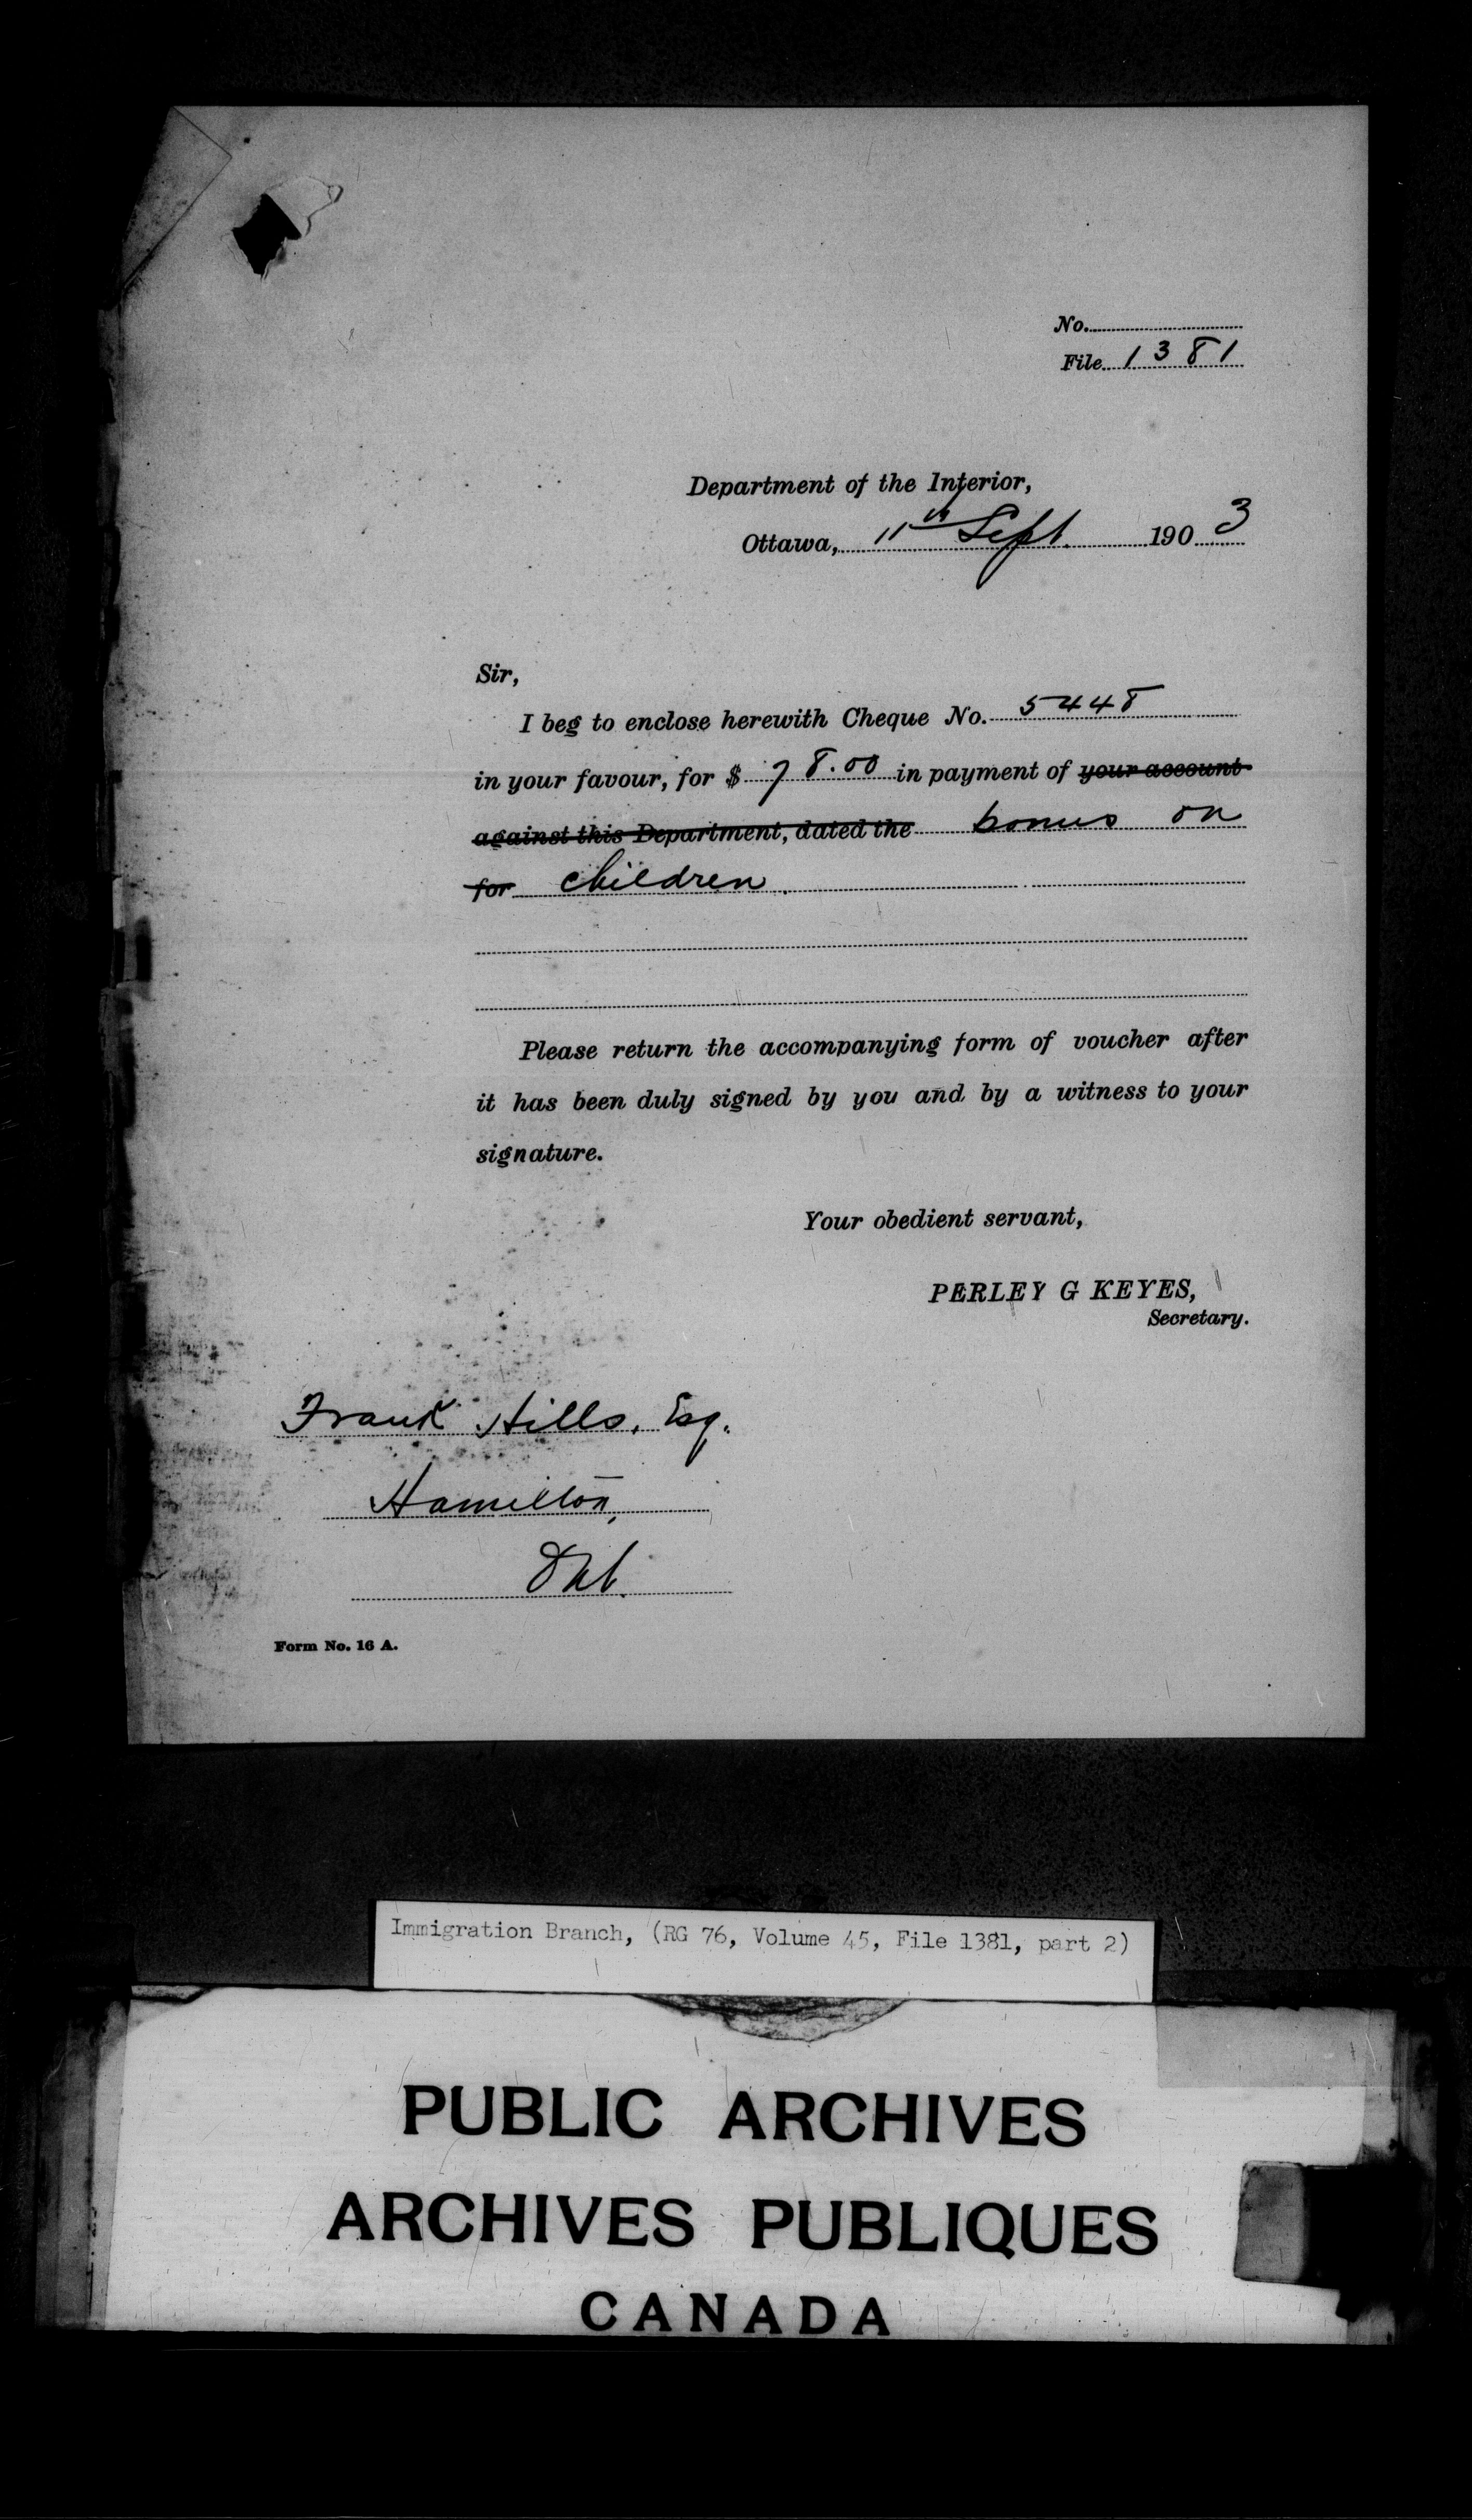 No.
File 1381
Department of the Interior,
Ottawa, 11th Sept. 1903
Sir,
I beg to enclose herewith Cheque No. 5448
in your favour, for $ 78.00 in payment of your account
against this Department, dated the bonus on
for children.
Please return the accompanying form of voucher after
it has been duly signed by you and by a witness to your
signature.
Your obedient servant,
PERLEY G KEYES,
Secretary.
Frank Hills, Esq.
Hamilton,
Ont.
Form No. 16 A.
Immigration Branch, (RG 76, Volume 45, File 1381, part 2)
PUBLIC ARCHIVES
ARCHIVES PUBLIQUES
CANADA